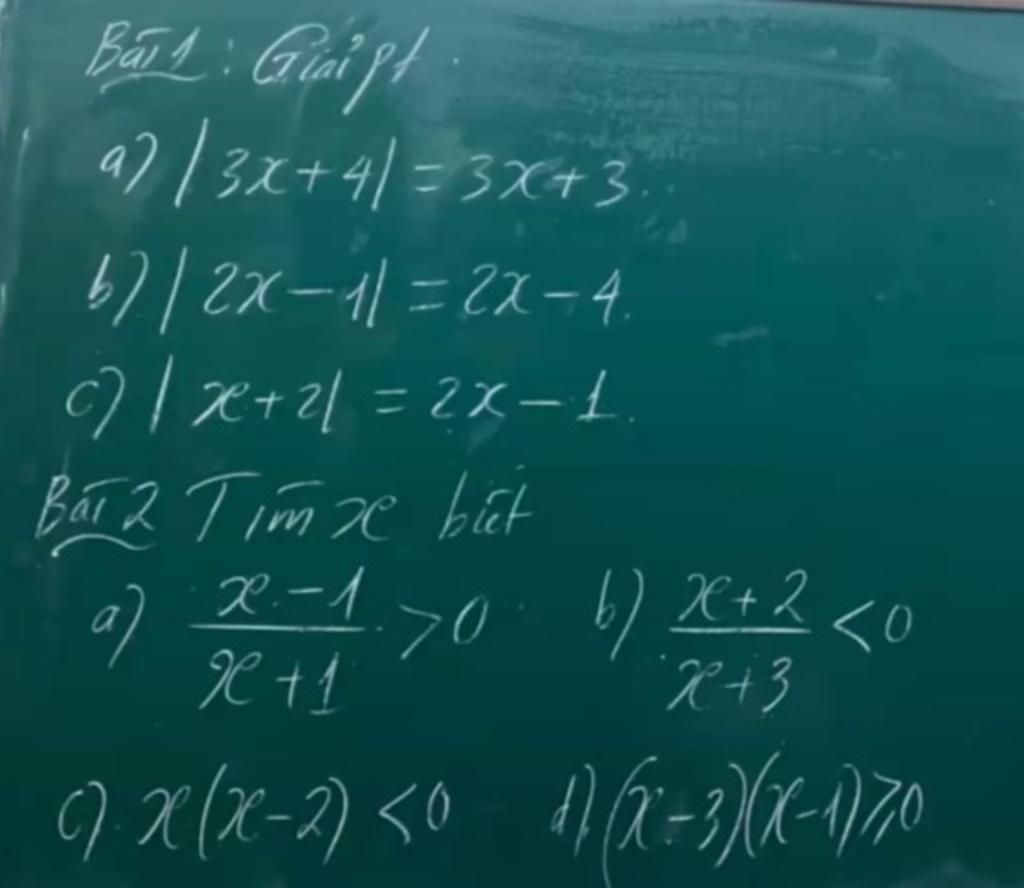 Bài 1 : Giải pt.
a) |3x+4| = 3x+3.
b) |2x-1| = 2x-4.
c) |x+2| = 2x-1.
Bài 2 Tìm x biết
a) \frac{x-1}{x+1} > 0 b) \frac{x+2}{x+3} < 0
c) x(x-2) < 0 d) (x-3)(x-1) ⩾ 0